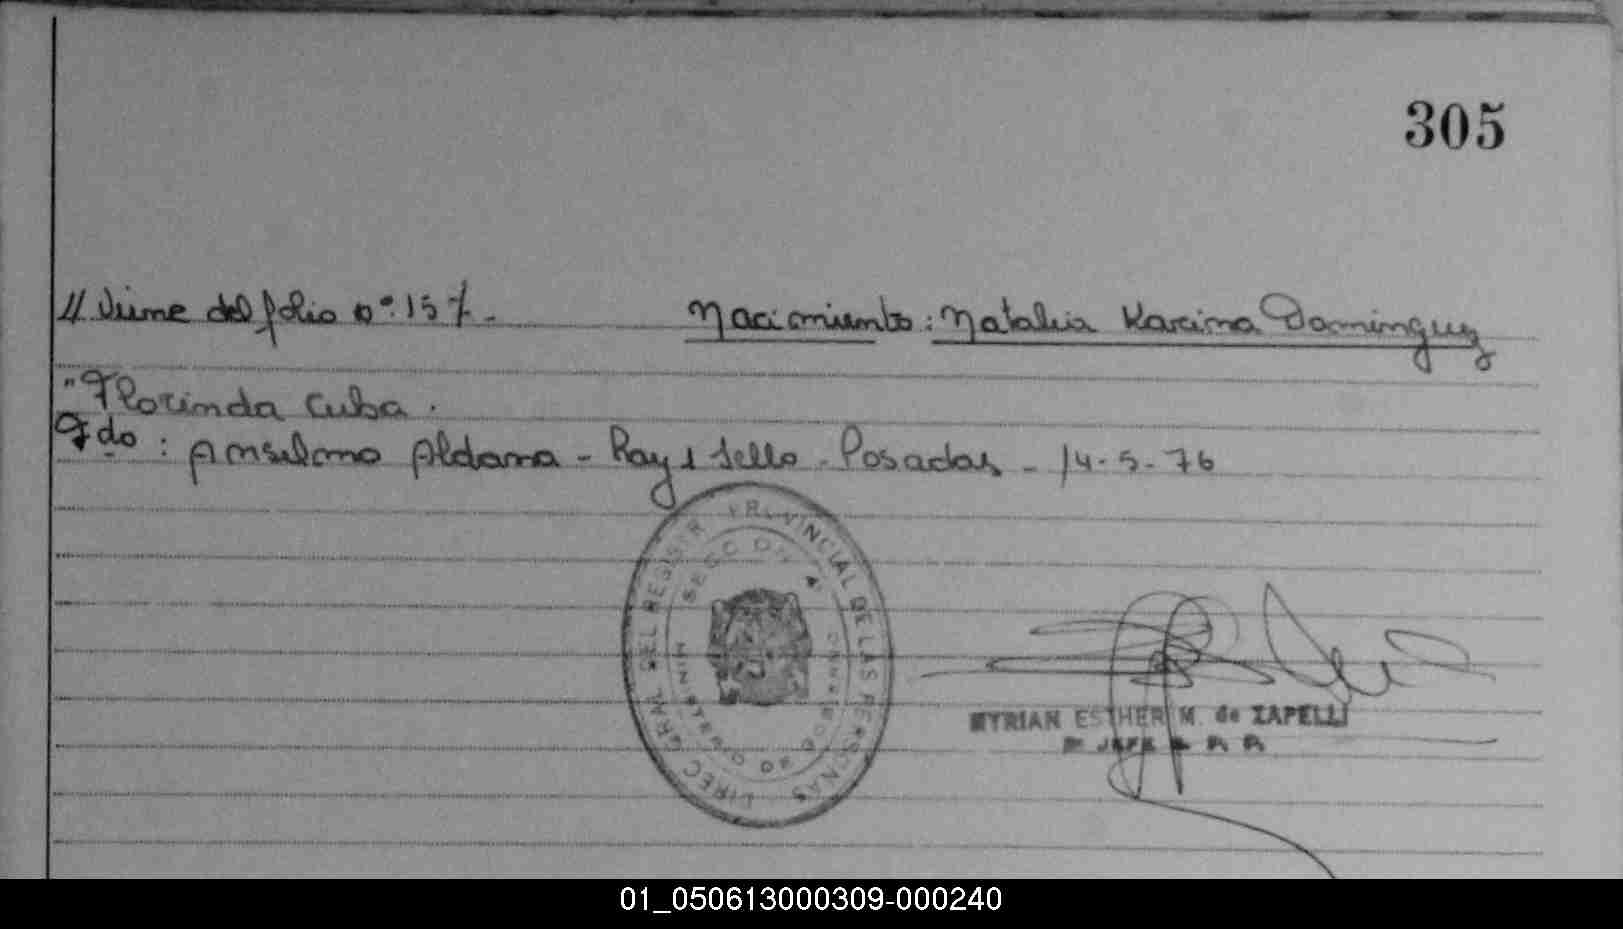 305
// Viene del folio nº: 157.- Nacimiento: Natalia Karina Dominguez
"Florinda Cuba.
Fdo: Anselmo Aldana - Hay 1 sello - Posadas - 14-5-76
DIREC GRAL DEL REGISTR PROVINCIAL DE LAS PERSONAS
SECC ON 4
MINISTERIO DE GOBIERNO
MYRIAN ESTHER M. de ZAPELLI
JEFE
01_050613000309-000240